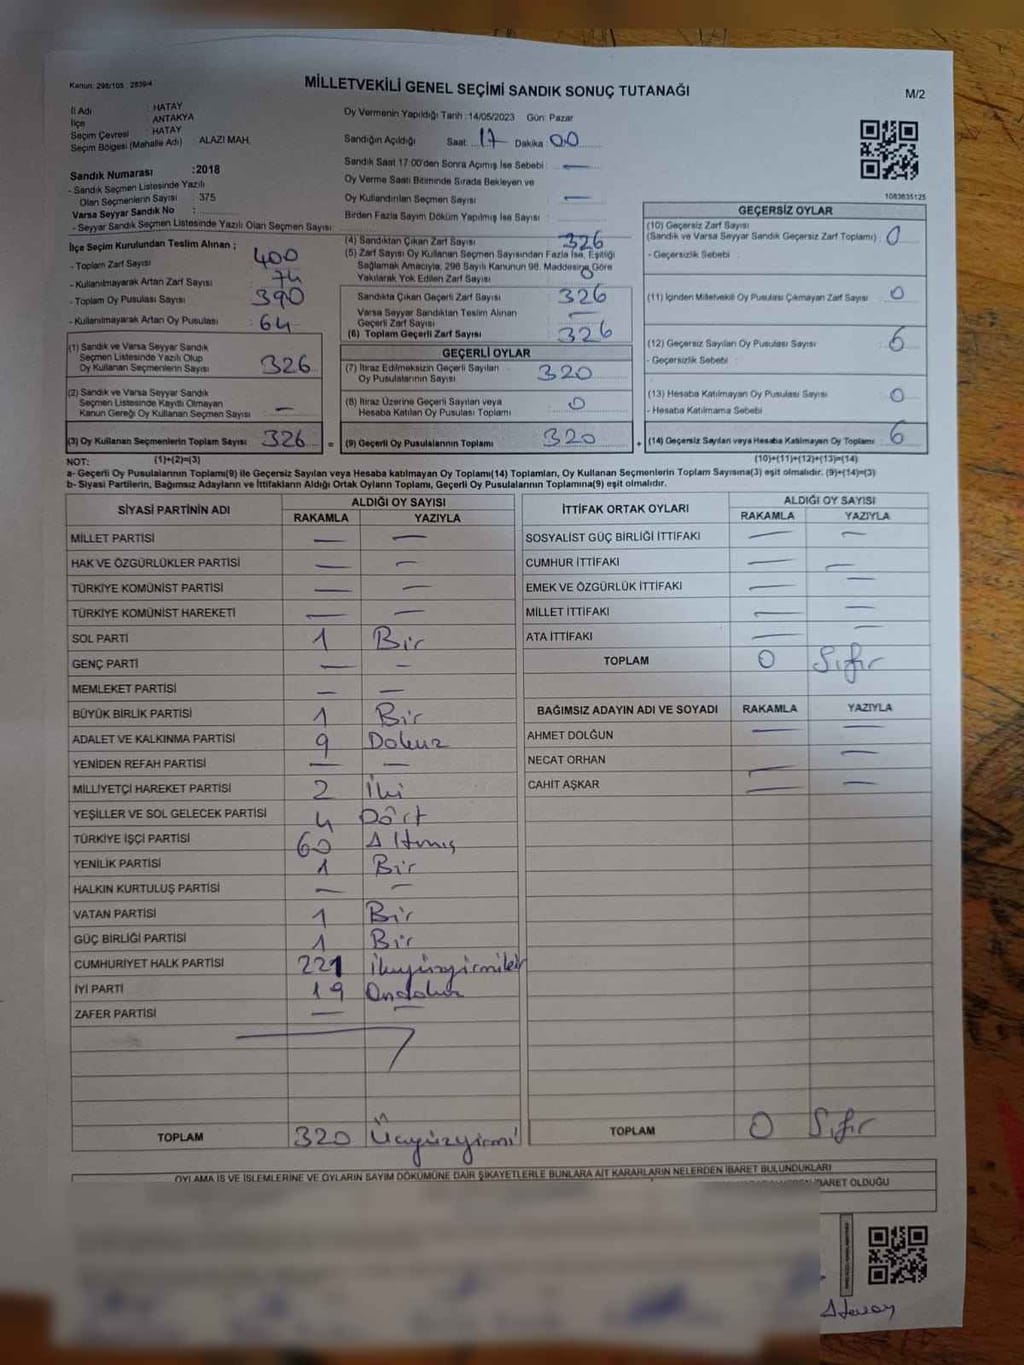 Kanun: 298/105 : 2839/4
MİLLETVEKİLİ GENEL SEÇİMİ SANDIK SONUÇ TUTANAĞI
M/2
İl Adı : HATAY
İlçe : ANTAKYA
Seçim Çevresi : HATAY
Seçim Bölgesi (Mahalle Adı) ALAZI MAH.
Oy Vermenin Yapıldığı Tarih :14/05/2023 Gün: Pazar
Sandığın Açıldığı Saat: 17 Dakika 00
Sandık Saat 17:00'den Sonra Açımış İse Sebebi : —
Oy Verme Saati Bitiminde Sırada Bekleyen ve
Oy Kullandırılan Seçmen Sayısı : —
Birden Fazla Sayım Döküm Yapılmış İse Sayısı :
1083635125
Sandık Numarası :2018
- Sandık Seçmen Listesinde Yazılı
Olan Seçmenlerin Sayısı : 375
Varsa Seyyar Sandık No :
- Seyyar Sandık Seçmen Listesinde Yazılı Olan Seçmen Sayısı:
İlçe Seçim Kurulundan Teslim Alınan ;
- Toplam Zarf Sayısı : 400
- Kullanılmayarak Artan Zarf Sayısı : 74
- Toplam Oy Pusulası Sayısı : 390
- Kullanılmayarak Artan Oy Pusulası : 64
(1) Sandık ve Varsa Seyyar Sandık
Seçmen Listesinde Yazılı Olup
Oy Kullanan Seçmenlerin Sayısı : 326
(2) Sandık ve Varsa Seyyar Sandık
Seçmen Listesinde Kayıtlı Olmayan
Kanun Gereği Oy Kullanan Seçmen Sayısı : —
(3) Oy Kullanan Seçmenlerin Toplam Sayısı : 326
(4) Sandıktan Çıkan Zarf Sayısı : 326
(5) Zarf Sayısı Oy Kullanan Seçmen Sayısından Fazla İse, Eşitliği
Sağlamak Amacıyla, 298 Sayılı Kanunun 98. Maddesine Göre
Yakılarak Yok Edilen Zarf Sayısı : 0
Sandıkta Çıkan Geçerli Zarf Sayısı : 326
Varsa Seyyar Sandıktan Teslim Alınan
Geçerli Zarf Sayısı : —
(6) Toplam Geçerli Zarf Sayısı : 326
GEÇERLİ OYLAR
(7) İtiraz Edilmeksizin Geçerli Sayılan
Oy Pusulalarının Sayısı : 320
(8) İtiraz Üzerine Geçerli Sayılan veya
Hesaba Katılan Oy Pusulası Toplamı : 0
= (9) Geçerli Oy Pusulalarının Toplamı : 320
GEÇERSİZ OYLAR
(10) Geçersiz Zarf Sayısı
(Sandık ve Varsa Seyyar Sandık Geçersiz Zarf Toplamı) : 0
- Geçersizlik Sebebi :
(11) İçinden Milletvekili Oy Pusulası Çıkmayan Zarf Sayısı : 0
(12) Geçersiz Sayılan Oy Pusulası Sayısı : 6
- Geçersizlik Sebebi :
(13) Hesaba Katılmayan Oy Pusulası Sayısı : 0
- Hesaba Katılmama Sebebi :
+ (14) Geçersiz Sayılan veya Hesaba Katılmayan Oy Toplamı : 6
NOT: (1)+(2)=(3) (10)+(11)+(12)+(13)=(14)
a- Geçerli Oy Pusulalarının Toplamı(9) ile Geçersiz Sayılan veya Hesaba katılmayan Oy Toplamı(14) Toplamları, Oy Kullanan Seçmenlerin Toplam Sayısına(3) eşit olmalıdır. (9)+(14)=(3)
b- Siyasi Partilerin, Bağımsız Adayların ve İttifakların Aldığı Ortak Oyların Toplamı, Geçerli Oy Pusulalarının Toplamına(9) eşit olmalıdır.
SİYASİ PARTİNİN ADI ALDIĞI OY SAYISI
RAKAMLA YAZIYLA
MİLLET PARTİSİ — —
HAK VE ÖZGÜRLÜKLER PARTİSİ — —
TÜRKİYE KOMÜNİST PARTİSİ — —
TÜRKİYE KOMÜNİST HAREKETİ — —
SOL PARTİ 1 Bir
GENÇ PARTİ — —
MEMLEKET PARTİSİ — —
BÜYÜK BİRLİK PARTİSİ 1 Bir
ADALET VE KALKINMA PARTİSİ 9 Dokuz
YENİDEN REFAH PARTİSİ — —
MİLLİYETÇİ HAREKET PARTİSİ 2 İki
YEŞİLLER VE SOL GELECEK PARTİSİ 4 Dört
TÜRKİYE İŞÇİ PARTİSİ 60 Altmış
YENİLİK PARTİSİ 1 Bir
HALKIN KURTULUŞ PARTİSİ — —
VATAN PARTİSİ 1 Bir
GÜÇ BİRLİĞİ PARTİSİ 1 Bir
CUMHURİYET HALK PARTİSİ 221 ikiyüzyirmibir
İYİ PARTİ 19 Ondokuz
ZAFER PARTİSİ — —
TOPLAM 320 Üçyüzyirmi
İTTİFAK ORTAK OYLARI ALDIĞI OY SAYISI
RAKAMLA YAZIYLA
SOSYALİST GÜÇ BİRLİĞİ İTTİFAKI — —
CUMHUR İTTİFAKI — —
EMEK VE ÖZGÜRLÜK İTTİFAKI — —
MİLLET İTTİFAKI — —
ATA İTTİFAKI — —
TOPLAM 0 Sıfır
BAĞIMSIZ ADAYIN ADI VE SOYADI RAKAMLA YAZIYLA
AHMET DOLĞUN — —
NECAT ORHAN — —
CAHİT AŞKAR — —
TOPLAM 0 Sıfır
OYLAMA İŞ VE İŞLEMLERİNE VE OYLARIN SAYIM DÖKÜMÜNE DAİR ŞİKAYETLERLE BUNLARA AİT KARARLARIN NELERDEN İBARET BULUNDUKLARI
İBARET OLDUĞU